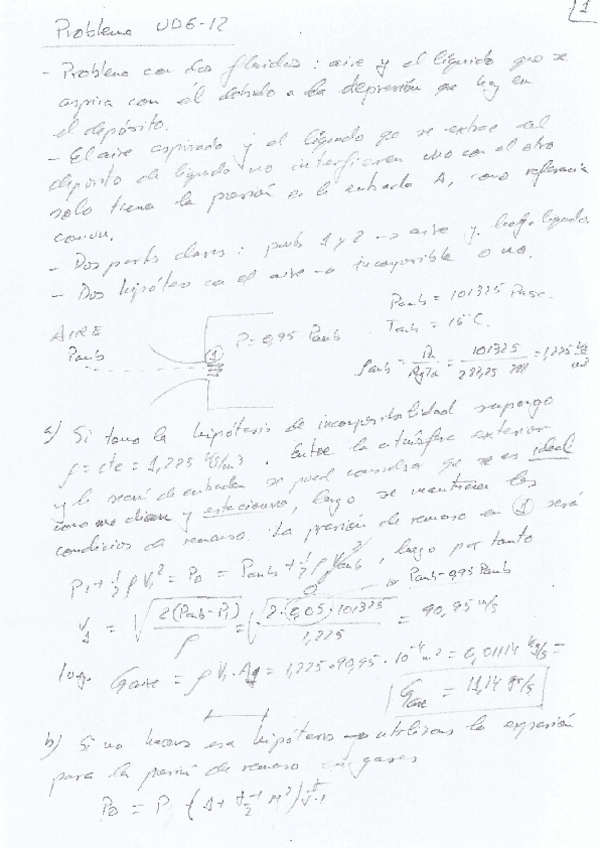 1
Problema UD6-12
- Problema con dos fluidos: aire y el líquido que se
aspira con él debido a la depresión que hay en
el depósito.
- El aire aspirado y el líquido que se extrae del
deposito de líquido no interfieren uno con el otro
solo tiene la presión en la entrada A, como referencia
comun.
- Dos partes claras: punto 1 y 2 → aire y luego líquido
- Dos hipótesis con el aire → incompresible o no.
AIRE
Pamb
① P = 0,95 Pamb
Pamb = 101325 Pasc.
Tamb = 15°C.
ρamb = Pa/RgTa = 101325/288,25 288 = 1,225 kg/m³
a) Si tomo la hipótesis de incompresibilidad supongo
ρ = cte = 1,225 kg/m³. Entre la atmósfera exterior
y la sección de entrada se puede considerar que es ideal
como me dicen y estacionario, luego se mantienen las
condiciones de remanso. La presión de remanso en ① será
P1 + ½ ρ V1² = P0 = Pamb + ½ ρ V²amb, luego por tanto
0
Pamb - 0,95 Pamb
V1 = √(2(Pamb - P1)/ρ) = √(2·0,05·101325/1,225) = 90,95 m/s
luego Gaire = ρ V1·A1 = 1,225·90,95·10⁻⁴ m² = 0,01114 kg/s =
Gaire = 11,14 gr/s
b) Si no hacemos esa hipótesis → utilizamos la expresión
para la presión de remanso en gases
P0 = P1 (1 + γ-1/2 M²)^γ/γ-1